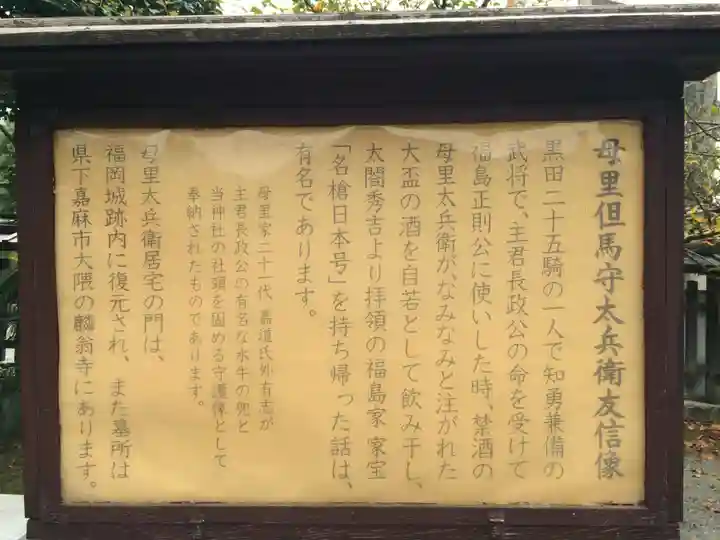 母里但馬守太兵衛友信像
黒田二十五騎の一人で知勇兼備の
武将で、主君長政公の命を受けて
福島正則公に使いした時、禁酒の
母里太兵衛が、なみなみと注がれた
大盃の酒を自若として飲み干し、
太閤秀吉より拝領の福島家家宝
「名槍日本号」を持ち帰った話は、
有名であります。
母里家二十一代 嘉道氏外有志が
主君長政公の有名な水牛の兜と
当神社の社頭を固める守護像として
奉納されたものであります。
母里太兵衛居宅の門は、
福岡城跡内に復元され、また墓所は
県下嘉麻市大隈の麟翁寺にあります。